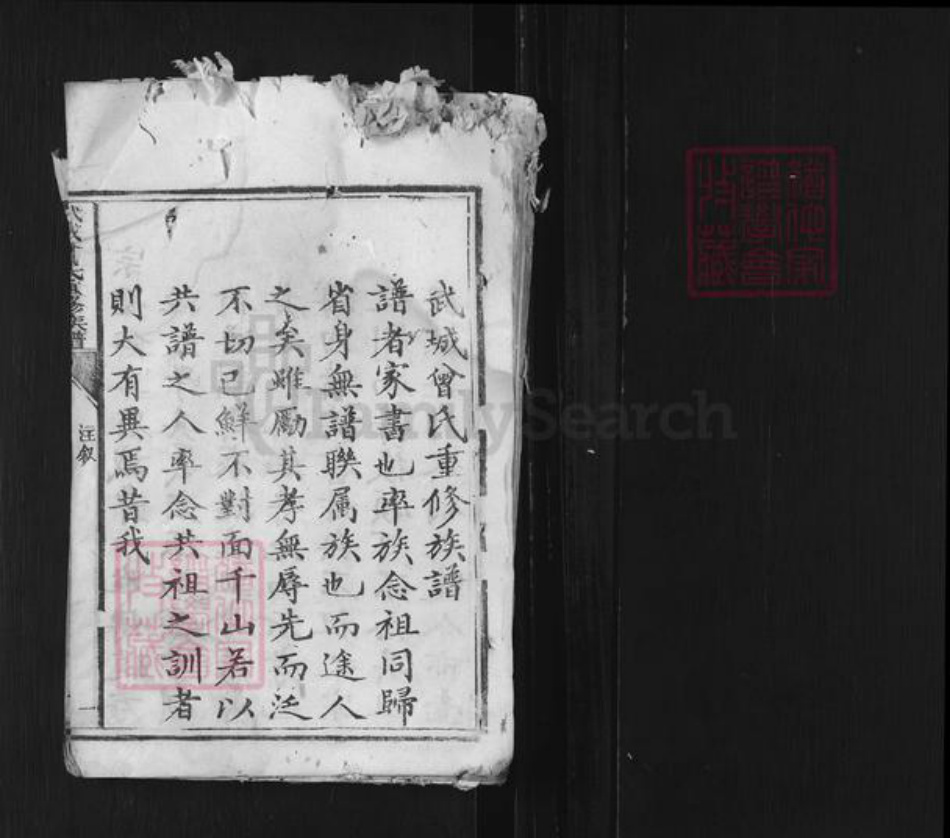 武城曾氏重修族譜
譜者家書也率族念祖同歸
省身無譜聯属族也而途人
之矣雖勵其孝無辱先而泛
不切已鮮不對面千山若以
共譜之人率念共祖之訓者
則大有異焉昔我
武城曾氏重修族譜
汪叙
FamilySearch